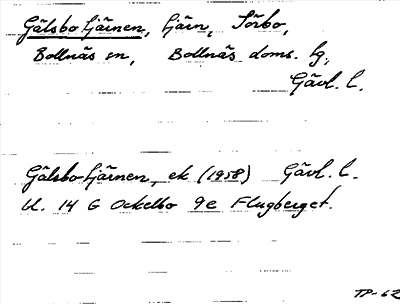 Gälsbo tjärnen, tjärn, Sörbo,
Bollnäs sn, Bollnäs doms. hg,
Gävl. l.
Gälsbo tjärnen, ek (1958) Gävl. l.
bl. 14 G Ockelbo 9e Flugberget.
TP-62